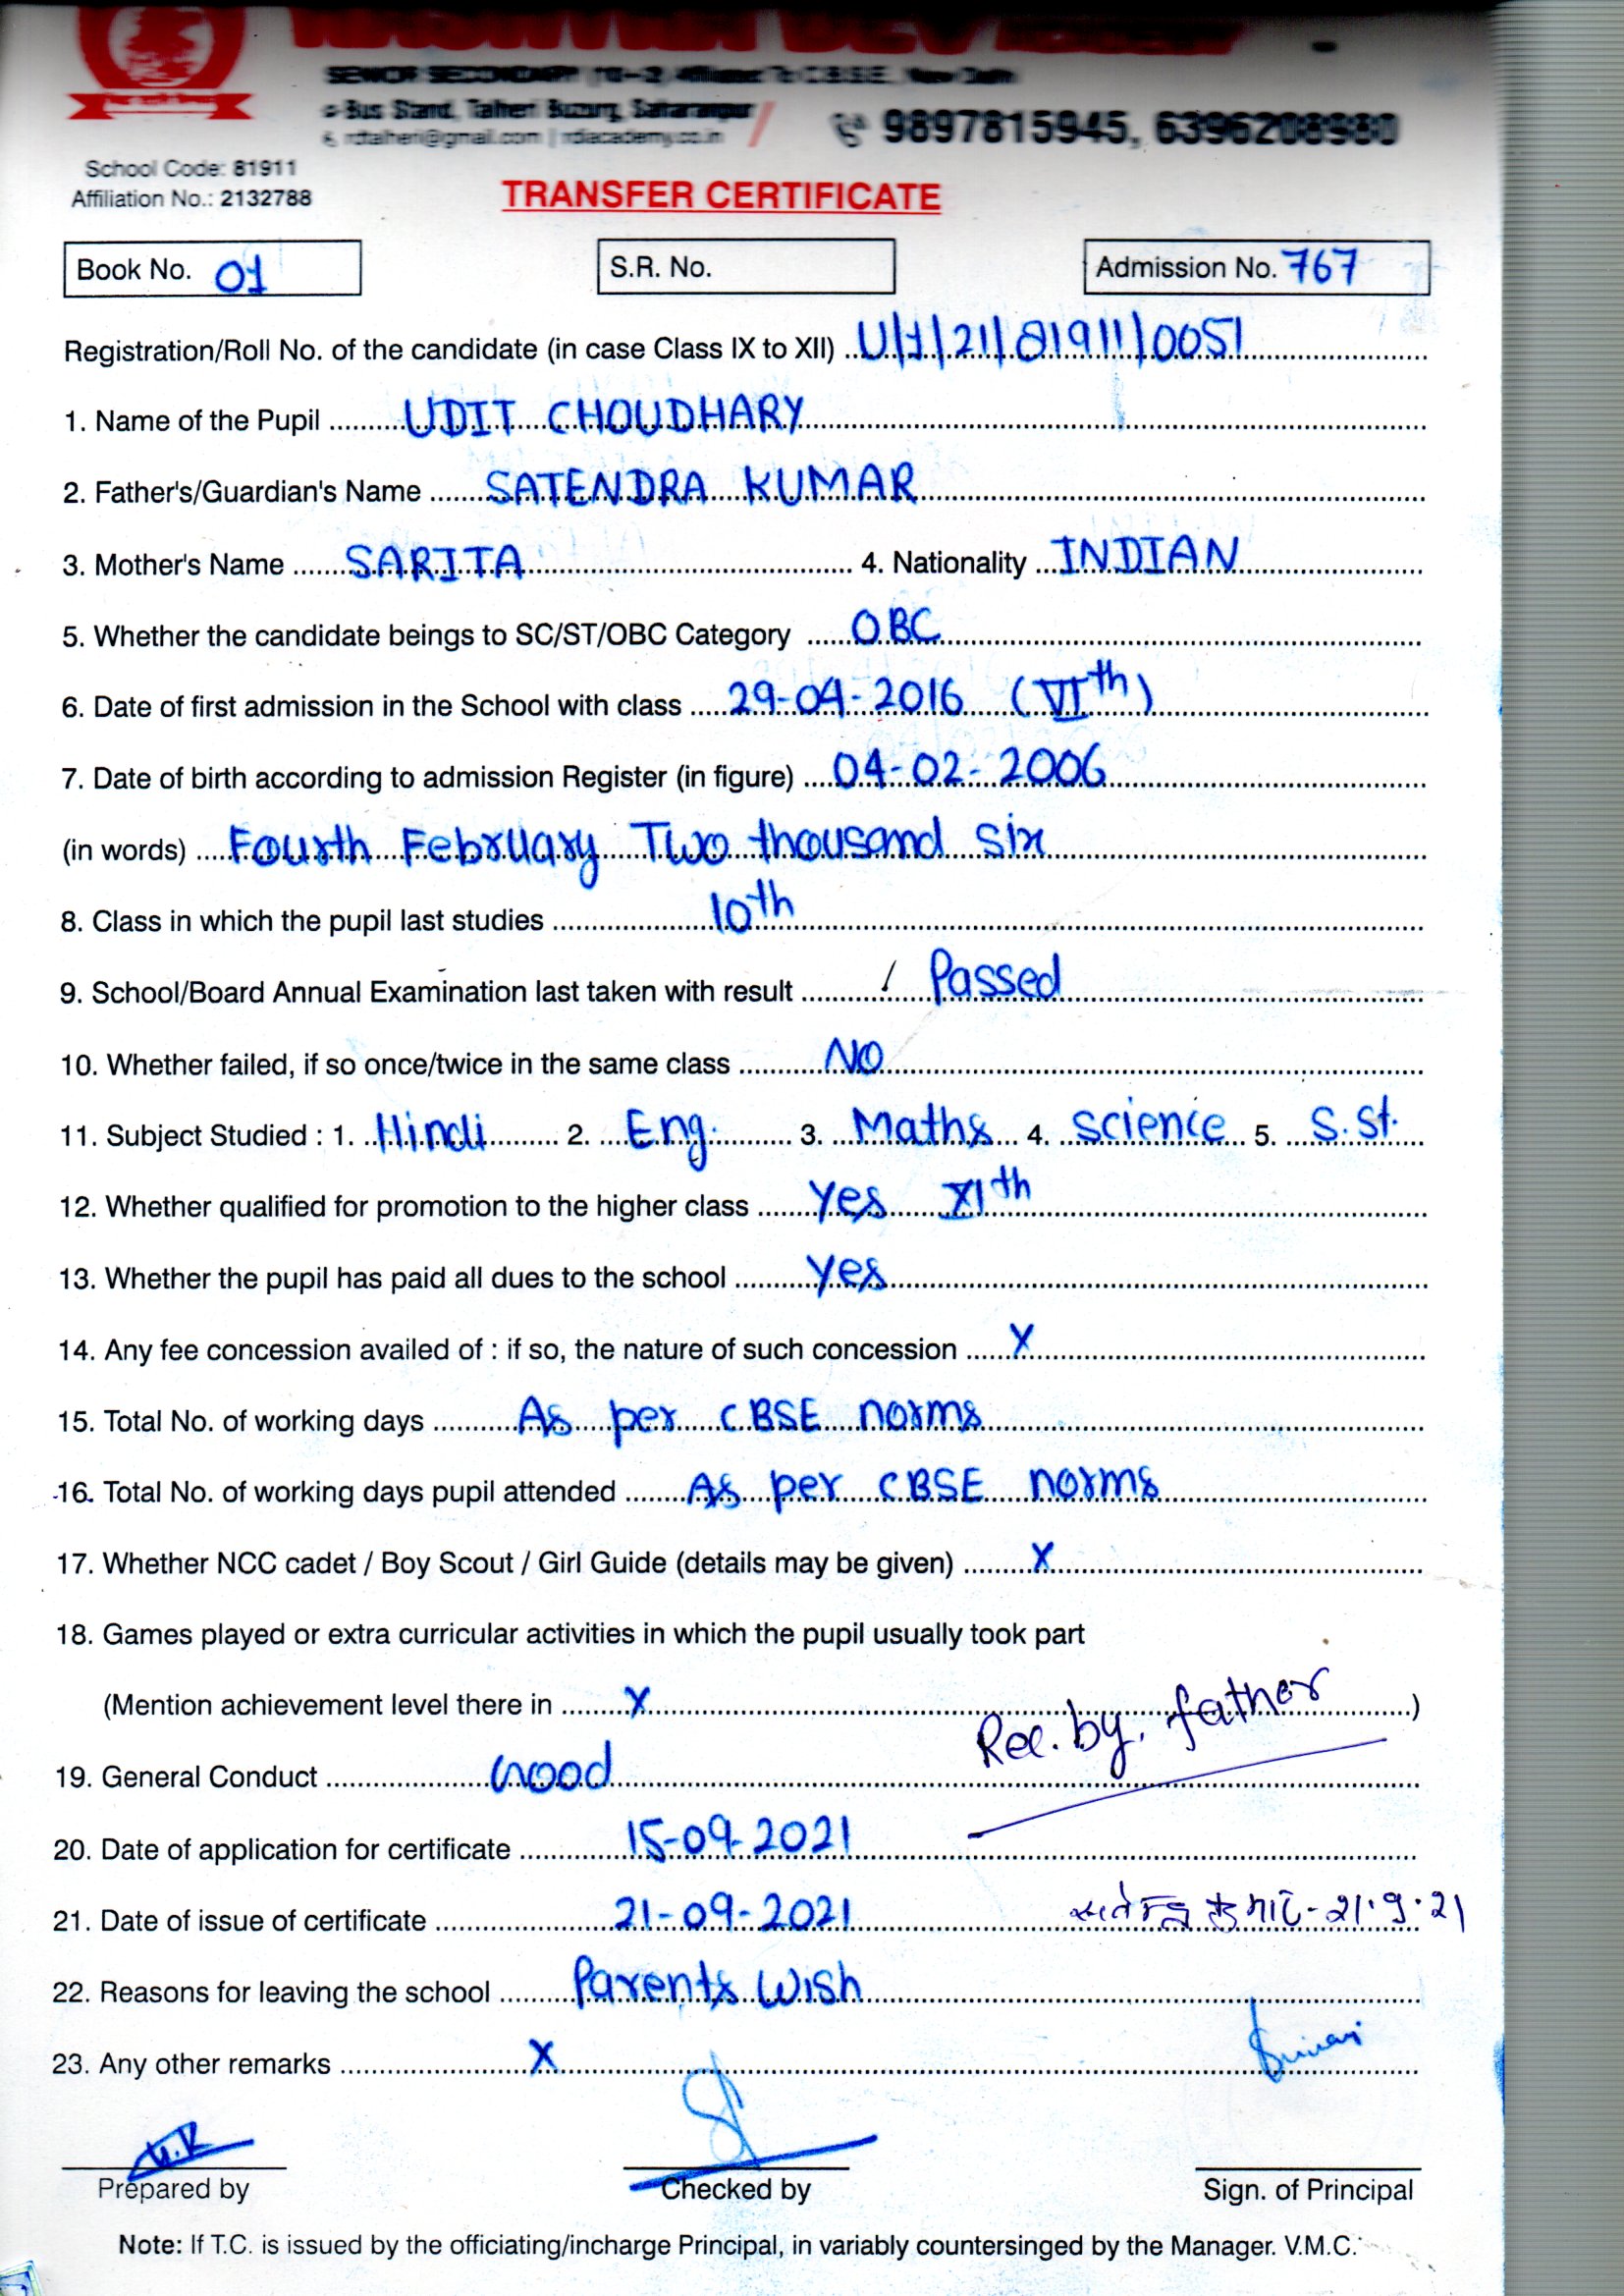 SENIOR SECONDARY (10+2) Affiliated To C.B.S.E., New Delhi
Bus Stand, Talheri Buzurg, Saharanpur
rdtalheri@gmail.com | rdiacademy.co.in
9897815945, 6396208980
School Code: 81911
Affiliation No.: 2132788
TRANSFER CERTIFICATE
Book No. 01 S.R. No. Admission No. 767
Registration/Roll No. of the candidate (in case Class IX to XII) U/1/21/81911/0051
1. Name of the Pupil UDIT CHOUDHARY
2. Father's/Guardian's Name SATENDRA KUMAR
3. Mother's Name SARITA 4. Nationality INDIAN
5. Whether the candidate beings to SC/ST/OBC Category OBC
6. Date of first admission in the School with class 29-04-2016 (VIth)
7. Date of birth according to admission Register (in figure) 04-02-2006
(in words) Fourth February Two thousand Six
8. Class in which the pupil last studies 10th
9. School/Board Annual Examination last taken with result Passed
10. Whether failed, if so once/twice in the same class NO
11. Subject Studied : 1. Hindi 2. Eng. 3. Maths 4. Science 5. S.St.
12. Whether qualified for promotion to the higher class Yes XIth
13. Whether the pupil has paid all dues to the school Yes
14. Any fee concession availed of : if so, the nature of such concession X
15. Total No. of working days As per CBSE norms
16. Total No. of working days pupil attended As per CBSE norms
17. Whether NCC cadet / Boy Scout / Girl Guide (details may be given) X
18. Games played or extra curricular activities in which the pupil usually took part
(Mention achievement level there in X )
Rec. by. father
19. General Conduct Good
20. Date of application for certificate 15-09-2021
21. Date of issue of certificate 21-09-2021 21.9.21
22. Reasons for leaving the school Parents Wish
23. Any other remarks X
Prepared by Checked by Sign. of Principal
Note: If T.C. is issued by the officiating/incharge Principal, in variably countersinged by the Manager. V.M.C.